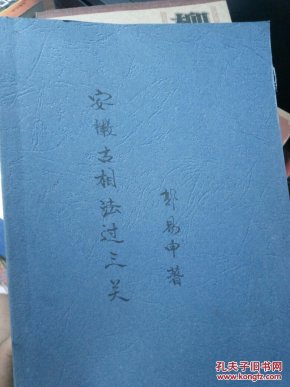 安徽古相法过三关
郭易申著
孔夫子旧书网